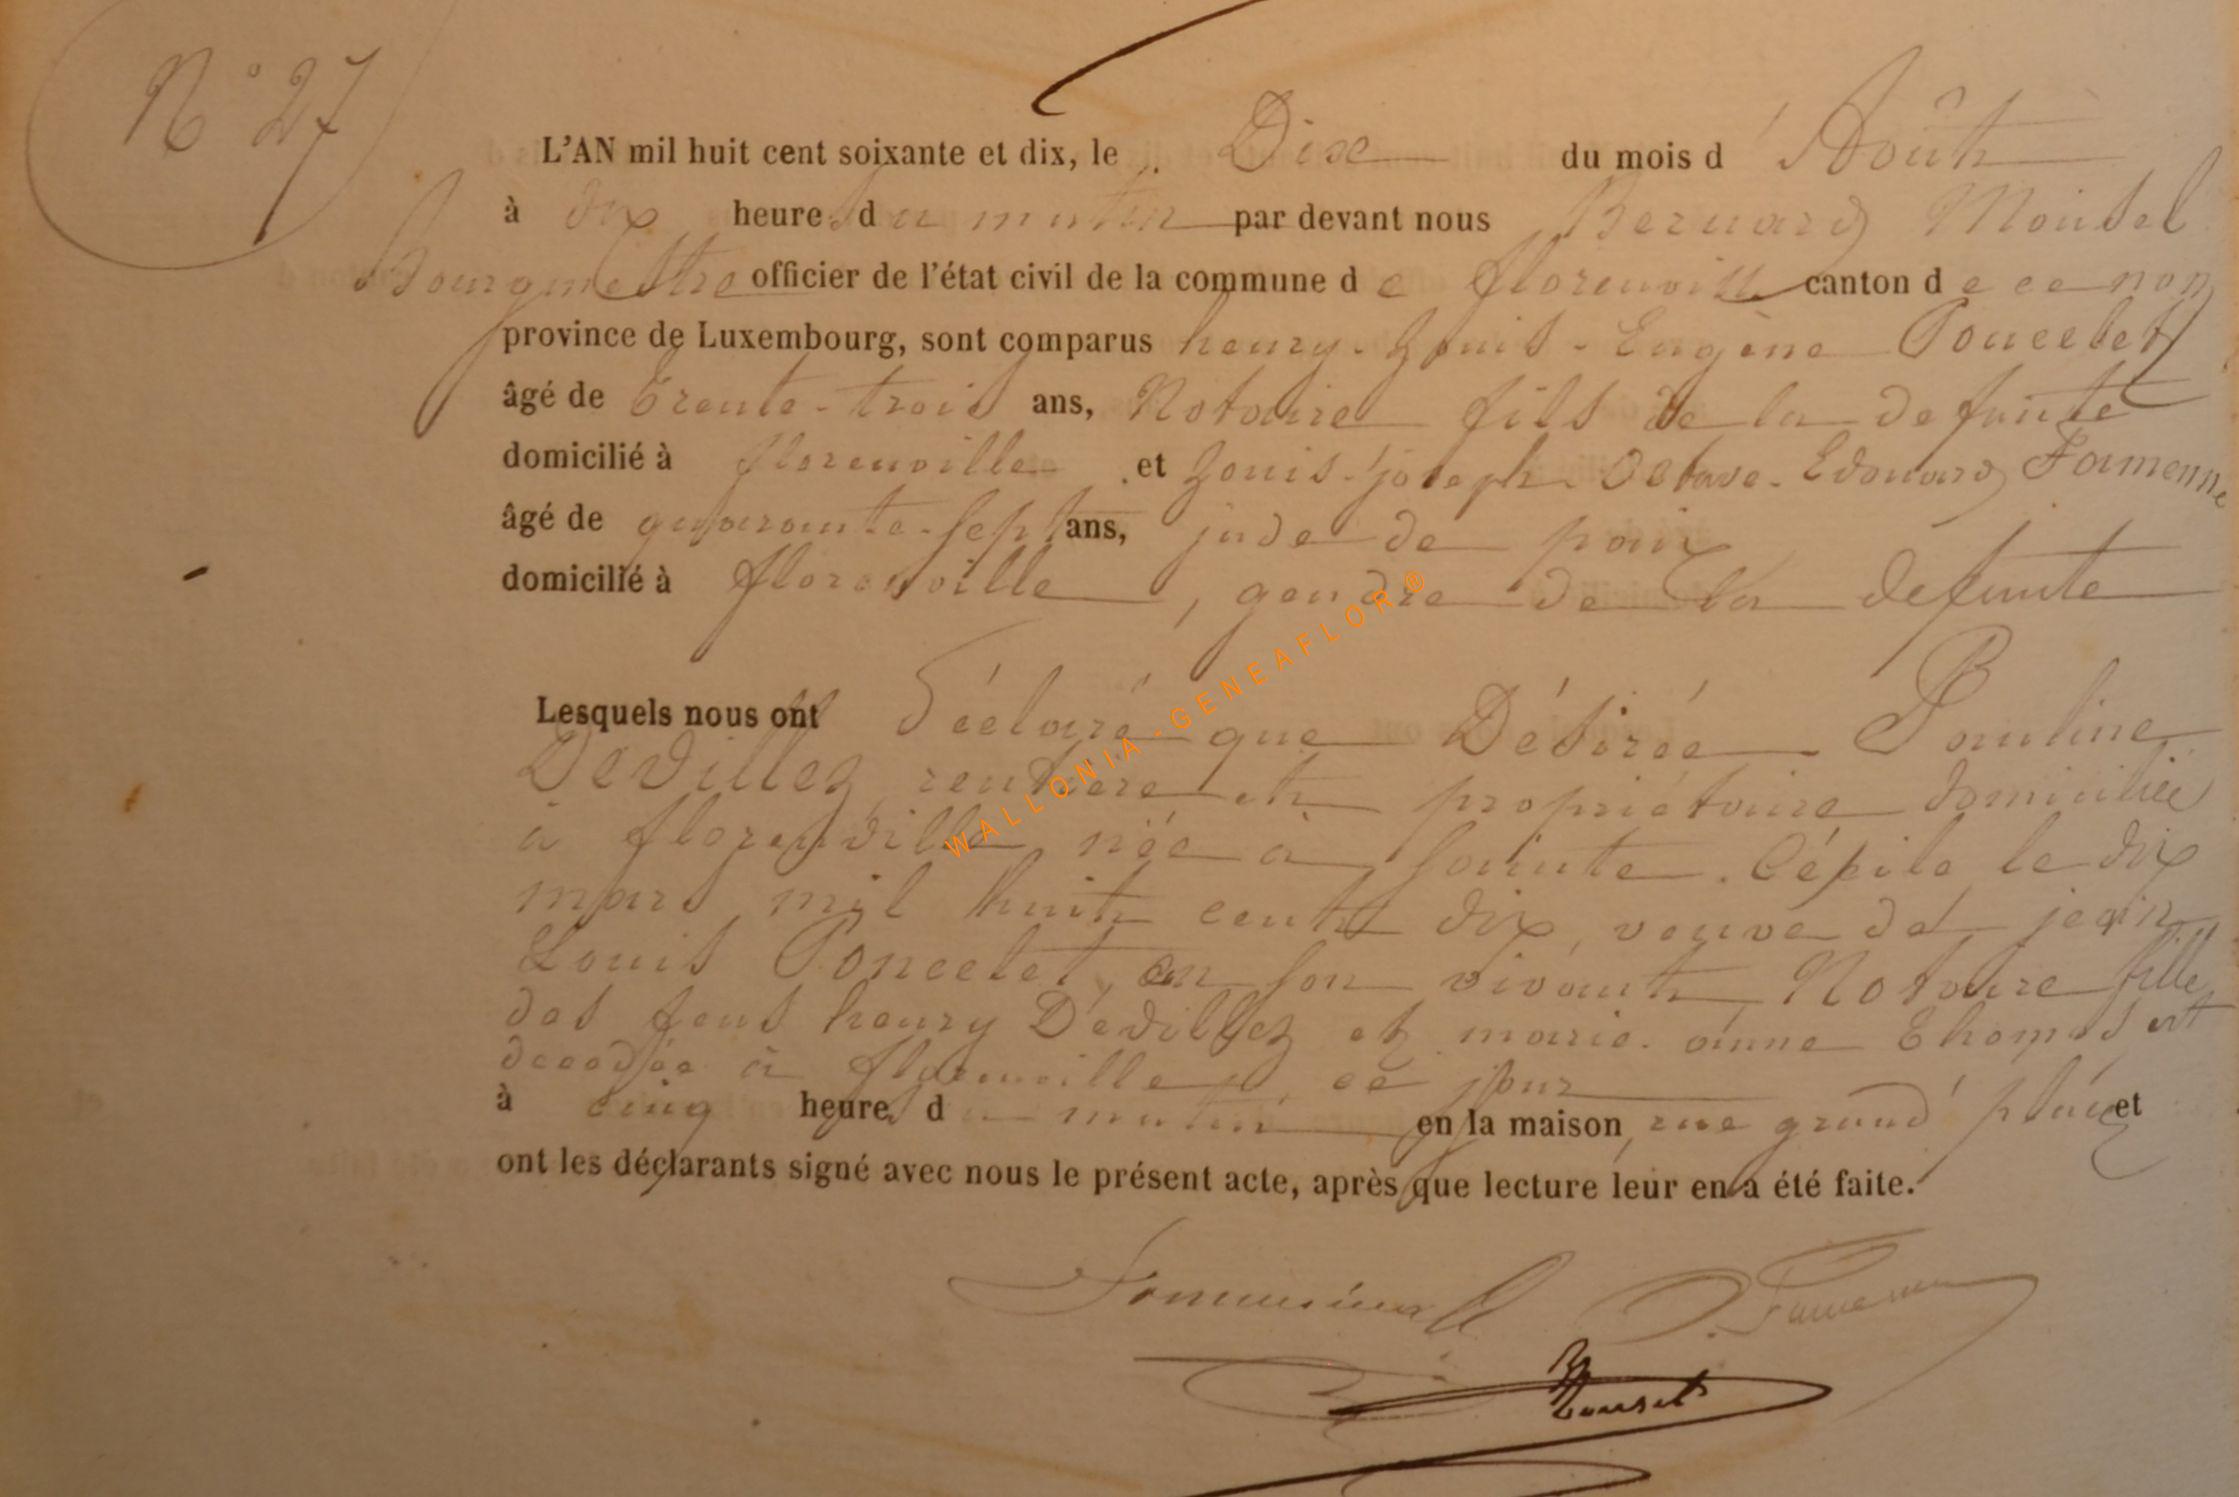 N° 27
L'AN mil huit cent soixante et dix, le Dix du mois d'Août
à dix heures du matin par devant nous Bernard Monsel
Bourgmestre officier de l'état civil de la commune de florenville canton de ce nom
province de Luxembourg, sont comparus henry-Louis-Eugène Poncelet
âgé de trente-trois ans, Notaire fils de la defunte
domicilié à florenville et Louis-joseph-Octave-Edouard Famenne
âgé de quarante-sept ans, jude de paix
domicilié à florenville, gendre de la defunte
Lesquels nous ont déclaré que Désirée-Pauline
Devillez rentière et propriétaire domiciliée
à florenville née à Sainte-Cécile le dix
mars mil huit cent dix, veuve de jean
Louis Poncelet, en son vivant Notaire fille
des feus henry Devillez et marie-anne Thomas est
décédée à florenville, ce jour
à cinq heures du matin en la maison, rue grand'place et
ont les déclarants signé avec nous le présent acte, après que lecture leur en a été faite.
Famenne
Monsel
WALLONIA-GENEAFLOR®